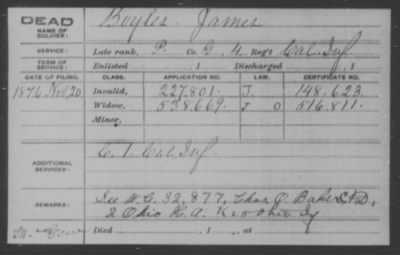 DEAD
NAME OF SOLDIER: Boyles James
SERVICE: Late rank, P. Co. G 4 Reg't Cal Inf
TERM OF SERVICE: Enlisted , 1 Discharged , 1
DATE OF FILING. CLASS. APPLICATION NO. LAW. CERTIFICATE NO.
1876 Nov 20 Invalid, 227.801. J. 148.623.
Widow, 538.669. J O 516.811.
Minor,
ADDITIONAL SERVICES: C. 1. Cal Inf.
REMARKS: See W.C. 32,877, Chas O. Baker
2 Ohio H.A. Ohio
Died , 1 , at